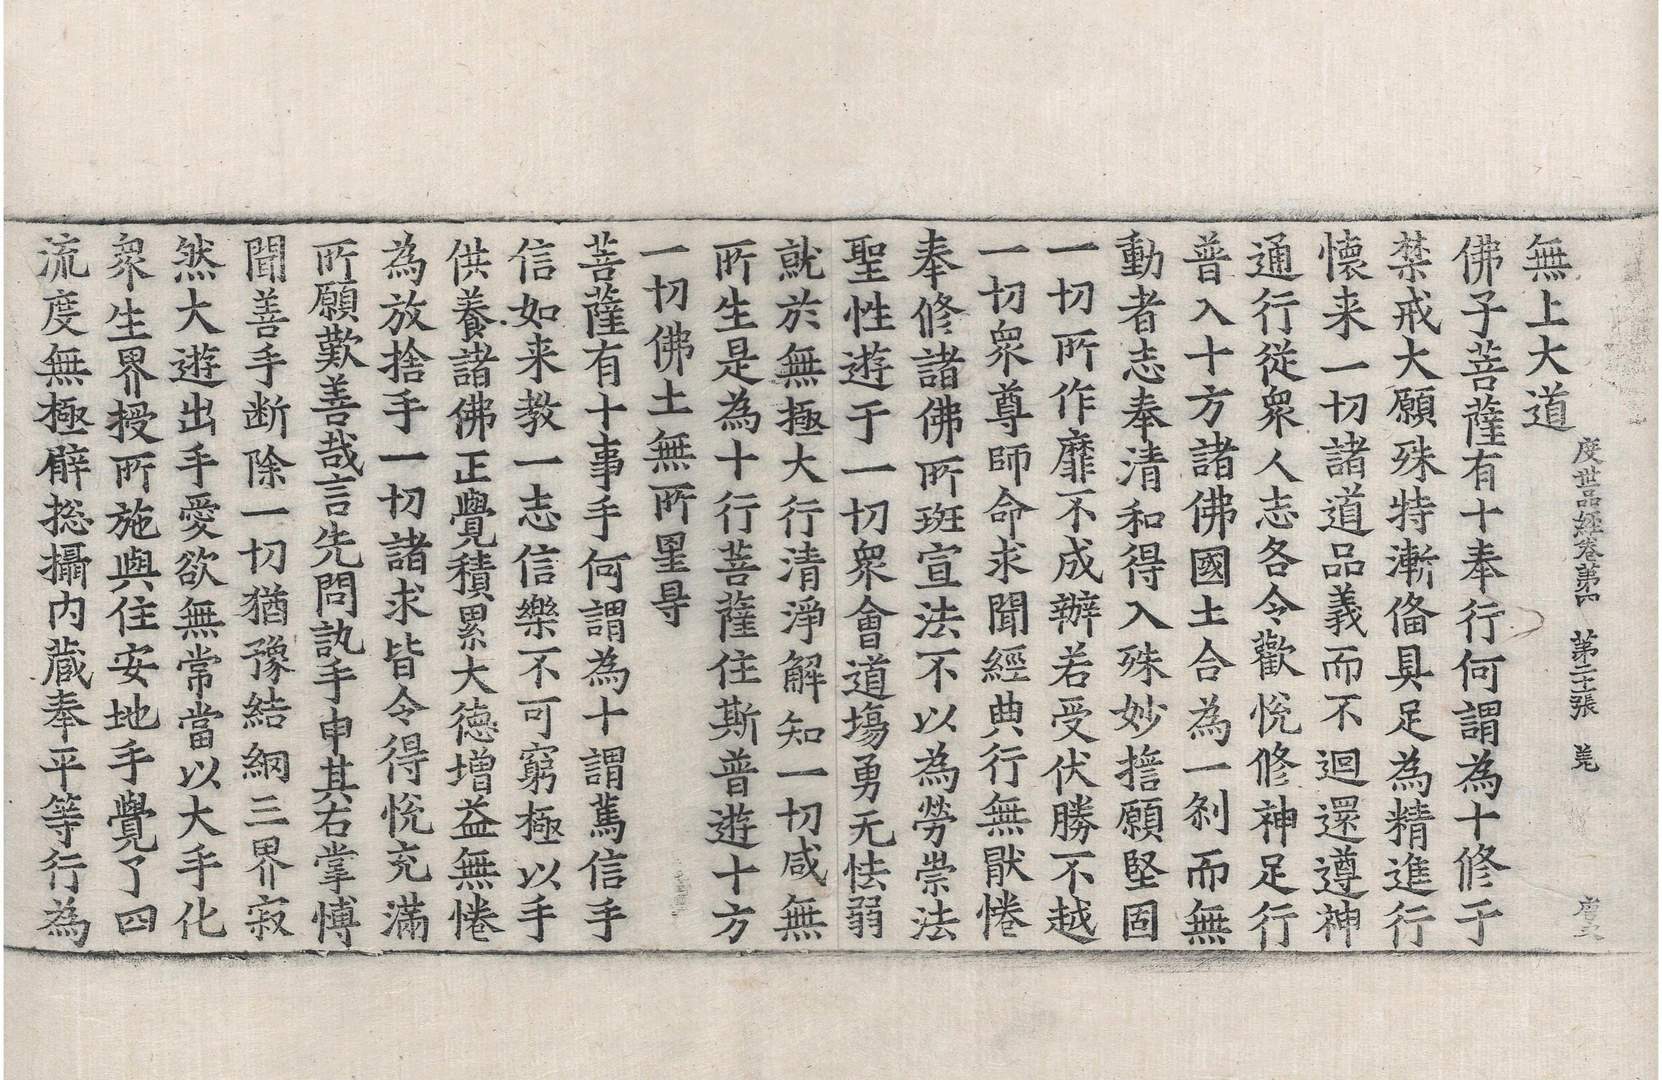 度世品經卷第四　第二十張　羌
無上大道
佛子菩薩有十奉行何謂為十修于
禁戒大願殊特漸俻具足為精進行
懷来一切諸道品義而不迴還遵神
通行從衆人志各令歡悅修神足行
普入十方諸佛國土合為一刹而無
動者志奉清和得入殊妙擔願堅固
一切所作靡不成辦若受伏勝不越
一切衆尊師命求聞經典行無猒惓
奉修諸佛所班宣法不以為勞崇法
聖性遊于一切衆會道塲勇无怯弱
就於無極大行清淨解知一切咸無
所生是為十行菩薩住斯普遊十方
一切佛土無所罣㝵
菩薩有十事手何謂為十謂篤信手
信如来教一志信樂不可窮極以手
供養諸佛正覺積累大德增益無惓
為放捨手一切諸求皆令得悅充滿
所願歎善哉言先問訊手申其右掌愽
聞善手断除一切猶豫結網三界寂
然大遊出手愛欲無常當以大手化
衆生界授所施與住安地手覺了四
流度無極辟捴攝內蔵奉平等行為